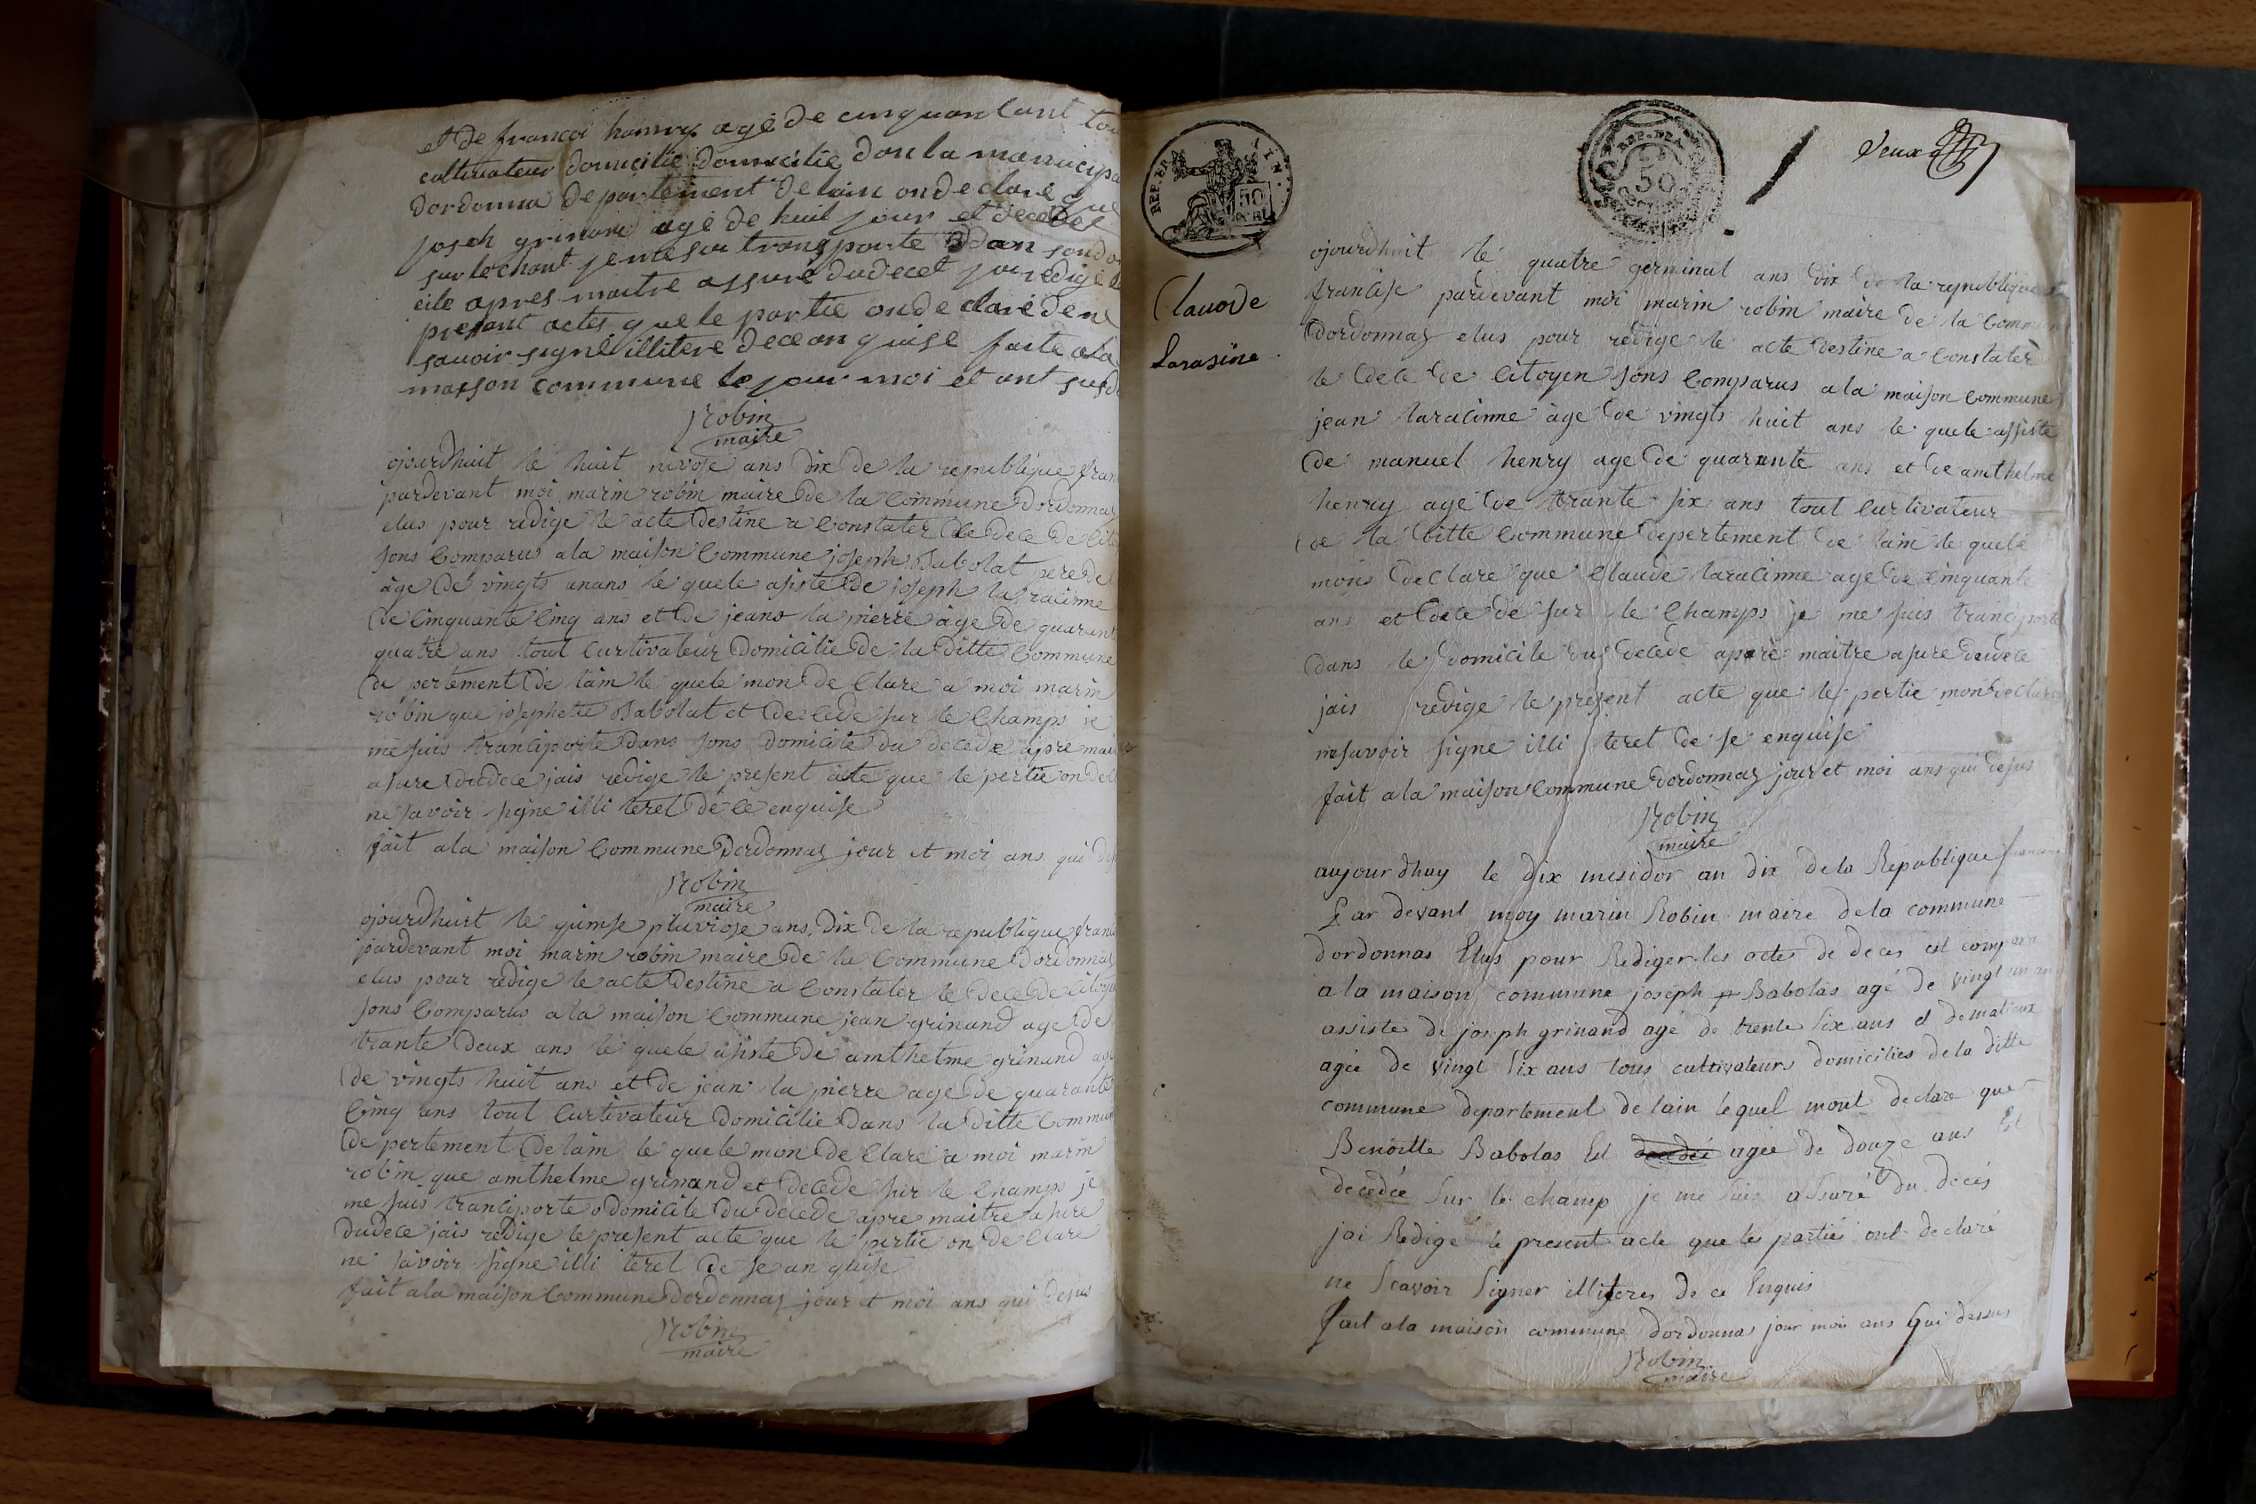 et de françoi hanry agé de cinquant cant
cultivateur domicilie domicilie don la municipa
dordonna de partement de lain on de claré que
joseh grinand agé de huit jour et decedé
sur le chant je me sui transporte dan son do
cile apres maitre assuré du decet jai redigé le
presant actes que le partie on de claré de ne
savoir signé illitere de ce anquise faite a la
maison commune le jour moi et ant susd
Robin
maire
ojourdhuit le huit nivose ans dix de la republique fran
pardevant moi marin robin maire de la Commune dordonnas
elus pour redige le acte destine a Constater le dece de Cito
sons Comparus a la maison Commune joseph Babolat pere de
âge de vingts unans le quele asiste de joseph la racinne
de Cinquante Cinq ans et de jeans la pierre âge de quarant
quatre ans tout Curtivateur domicilie de la ditte Commune
de pertement de lain le quele mon de Clare a moi marin
robin que josephete Babolat et decede sur le Champs je
me suis tranciporte dans sons domicile du decede apre maitre
asure du dece jais redige le present acte que le pertie on de
ne savoir signe illi teret de ce enquise
fait a la maison Commune Dordonnas jour et moi ans qui
Robin
maire
ojourdhuit le quinse pluviose ans dix de la republique franc
pardevant moi marin robin maire de la Commune dordonnas
elus pour redige le acte destine a Constater le dece de Citoye
sons Comparus a la maison Commune jean grinand age de
trante deux ans le quele asiste de amthelme grinand age
de vingts huit ans et de jean la pierre age de quarante
Cinq ans tout Curtivateur domicilie dans la ditte Commun
de pertement de lain le quele mon de Clare a moi marin
robin que amthelme grinand et decede sur le Champs je
me suis tranciporte o domicile du decede apre maitre asure
du dece jais redige le present acte que le pertie on de Clare
ne savoir signe illi teret de se anquise
fait a la maison Commune dordonnas jour et moi ans qui desus
Robin
maire
REP. FRA
50
50
deux
Clauode
Larasine
ojourdhuit le quatre germinal ans dix de la republique
francise pardevant moi marin robin maire de la Commune
dordonnas elus pour redige le acte destine a Constater
le dece de Citoyen sons Comparus a la maison Commune
jean laracinne âge de vingts huit ans le quele assiste
de manuel henry age de quarante ans et de amthelme
henry age de trante six ans tout Curtivateur
de la ditte Commune depertement de lain le quele
mons declare que Claude laracinne age de Cinquante
ans et decede sur le Champs je me suis tranciporte
dans le domicile du decede apare maitre asure du dece
jais redige le present acte que le pertie mon declare
ne savoir signe illi teret de se enquise
fait a la maison Commune dordonnas jour et moi ans qui desus
Robin
maire
aujourdhuy le dix mesidor an dix de la Republique
Par devant moy marin Robin maire de la commune
dordonnas Elus pour Rediger les actes de deces est comparu
a la maison commune joseph Babolas agé de vingt un ans
assisté de joseph grinand agé de trente six ans et de matieux
agée de vingt six ans tous cultivateurs domiciliés de la ditte
commune departement de lain lequel mont declaré que
Benoitte Babolas Est agée de douze ans Et
decedée sur le champ je me suis assuré du decés
jai Redigé le present acte que les parties ont declaré
ne scavoir signer illiteres de ce Enquis
fait a la maison commune dordonnas jour mois ans qui dessus
Robin
maire